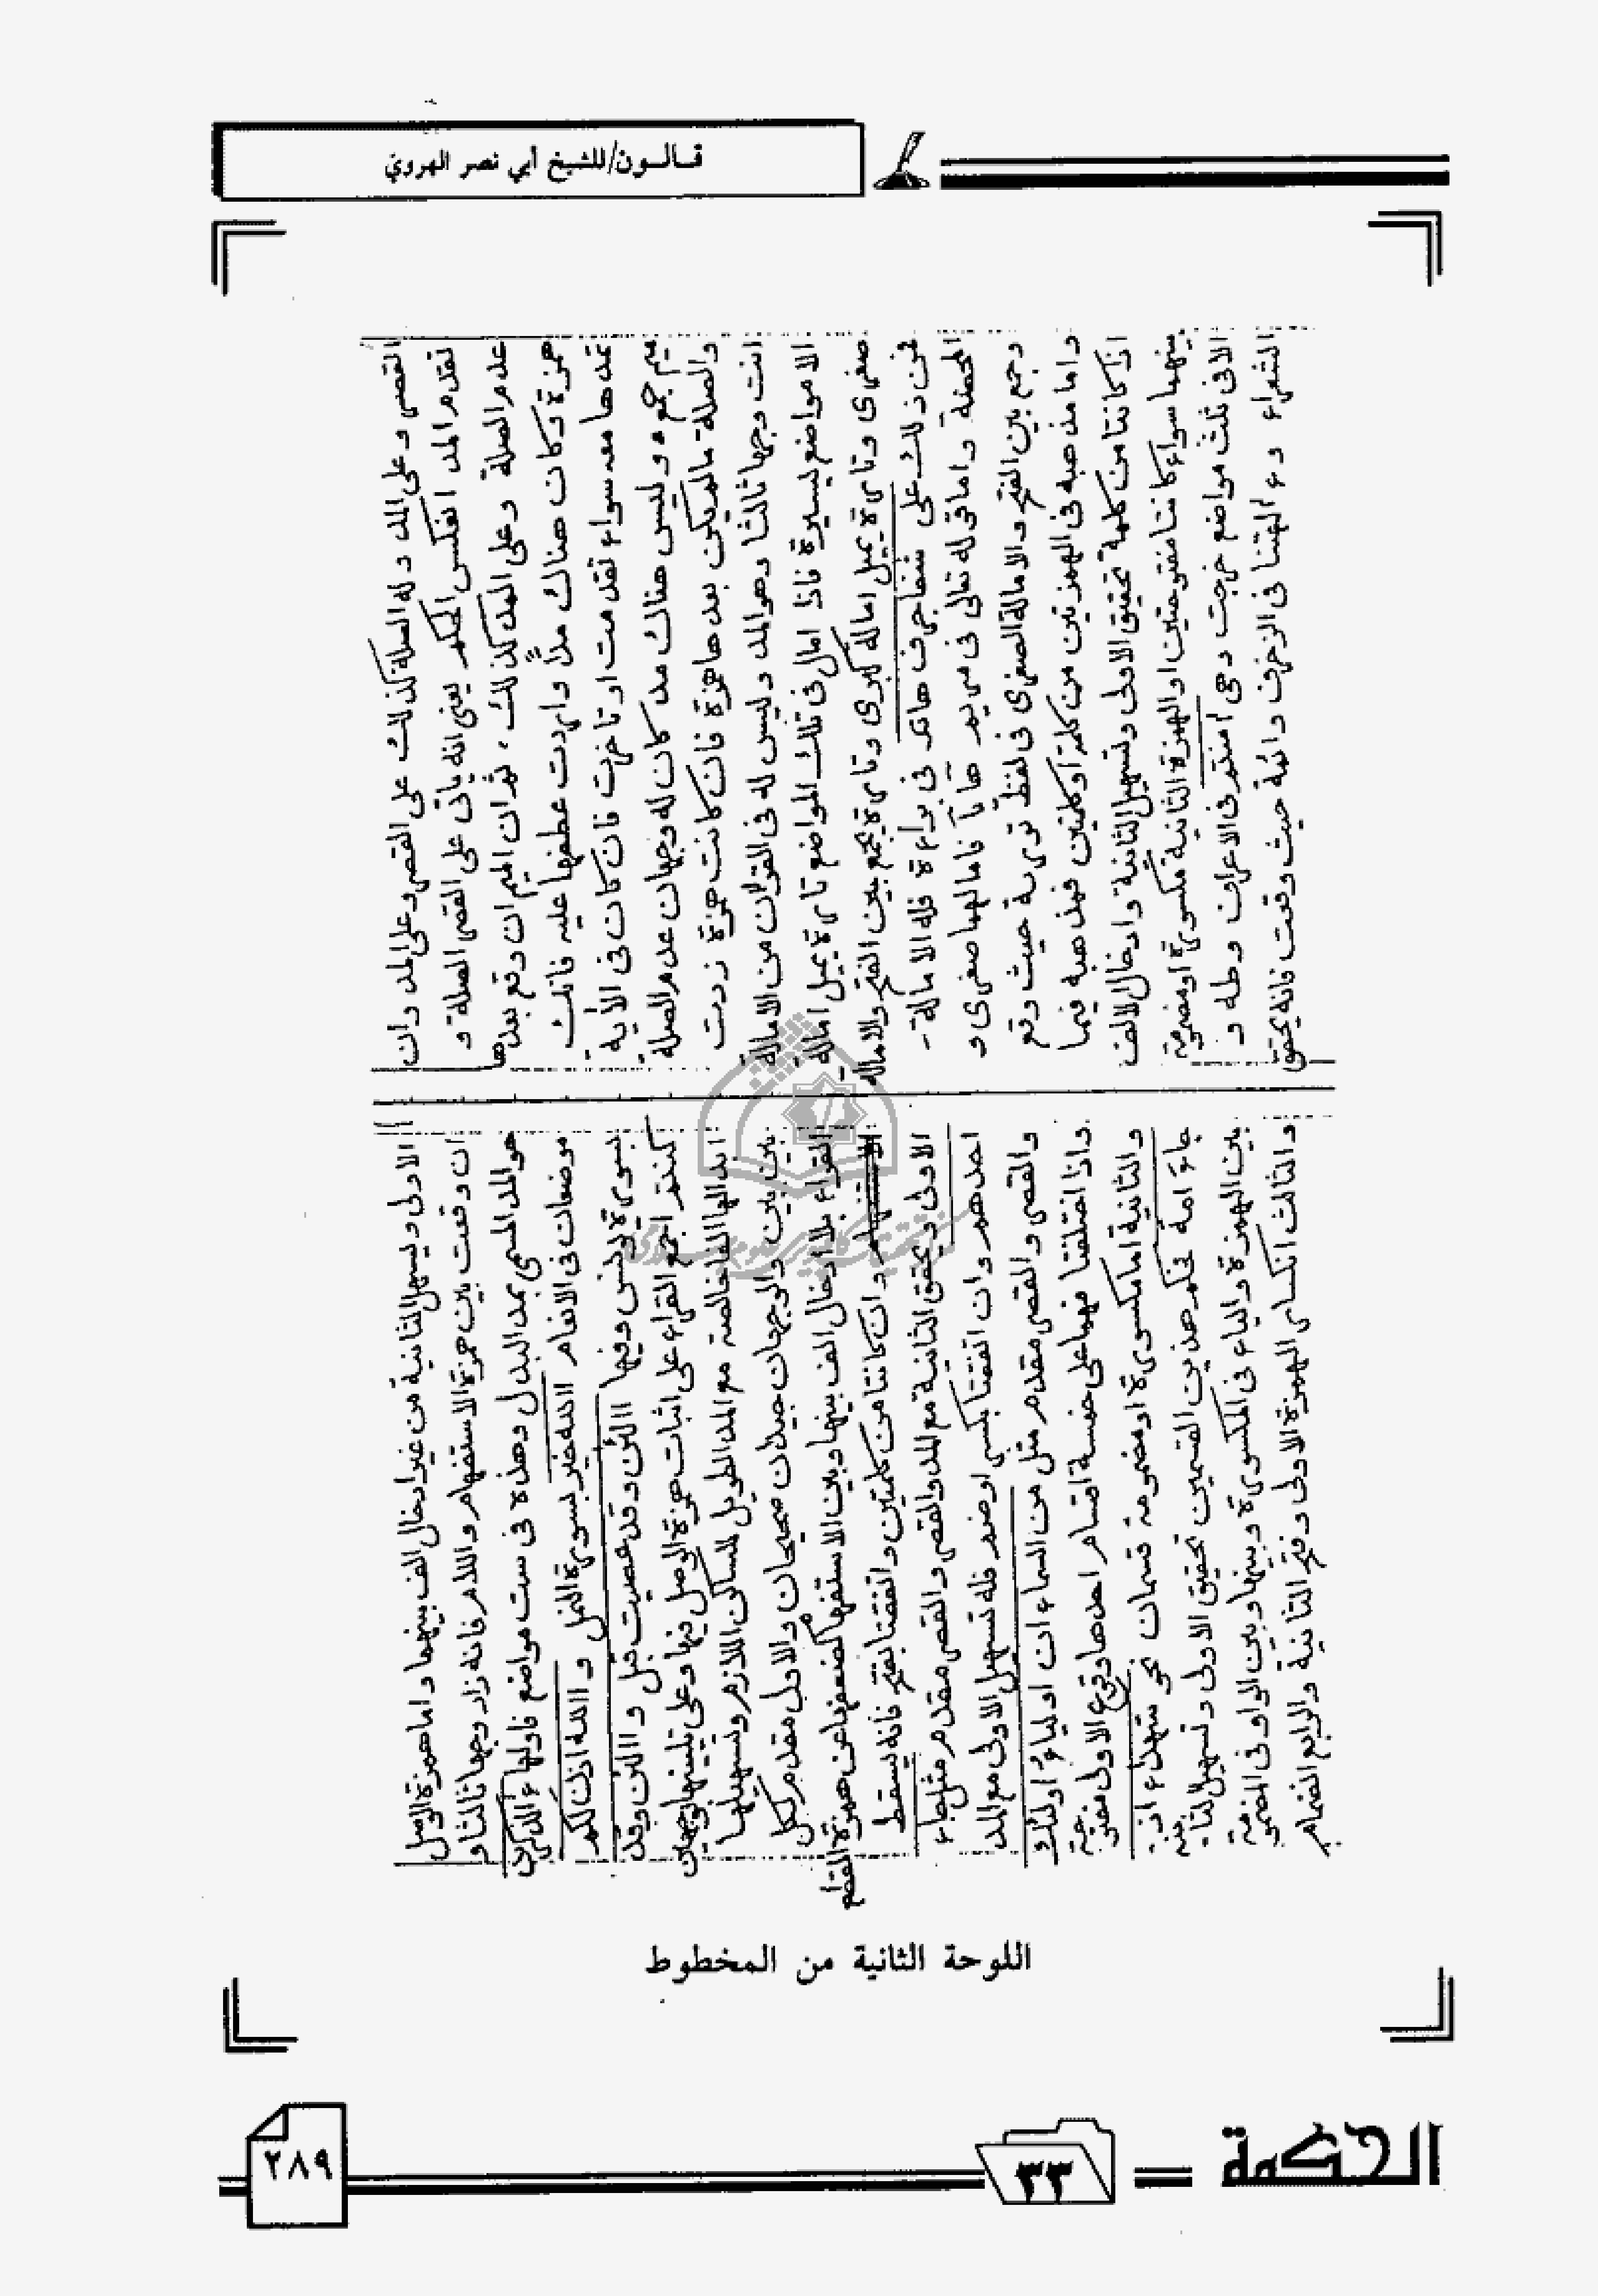 قالون/للشيخ أبي نصر الهروني
القصر وعلى المد وله الصلة كذلك على القصر وعلى المد وان
تقدم المد انعكس الحكم يعنى انه ياتى على القصر الصلة و
عدم الصلة وعلى المد كذلك ، ثم ان الميم ان وقع بعدها
همزة وكان هناك مدًّا واردت عطفها عليه فانك
تمدها معه سواء تقدمت او تاخرت فان كان فى الأية
ميم جمع وليس هناك مد كان له وجهان عدم الصلة
والصلة مالم يكن بعدها همزة فان كانت همزة زدت
انت وجها ثالثا وهو المد وليس له فى القرآن من الامالة
الا مواضع يسيرة فاذا امال فى تلك المواضع تارة يميل امالة
صغرى وتارة يميل امالة كبرى وتارة يجمع بين الفتح والامالة
فمن ذلك على شفا جرف هار فى براءة فله الامالة
المحضة واما قوله تعالى فى مريم ها يا فامالهما صغرى و
وجمع بين الفتح والامالة الصغرى فى لفظ تورية حيث وقع
واما مذهبه فى الهمزتين من كلمة او كلمتين فمذهبه فيما
اذا كانتا من كلمة تحقيق الاولى وتسهيل الثانية وادخال الالف
بينهما سواء كانتا مفتوحتين او الهمزة الثانية مكسورة او مضمومة
الا فى ثلث مواضع خرجت وهى أمنتم فى الاعراف وطه و
الشعراء وء الهتنا فى الزخرف وائمة حيث وقعت فانه يحقق
الاولى ويسهل الثانية من غير ادخال الف بينهما واما همزة الوصل
ان وقعت بين همزة الاستفهام واللام فانه زاد وجها ثالثا و
هو المد المسمى بمد البدل وهذه فى ست مواضع فاولها ءآلذكرين
موضعان فى الانعام االله خير بسورة النمل واالله اذن لكم
بسورة يونس وفيها االئن وقد عصيت قبل واالئن وقد
كنتم اجمع القراء على اثبات همزة الوصل فيها وعلى تليينها بوجهان
ابدالها الفا خالصة مع المد الطويل للساكن اللازم وتسهيلها
بين بين والوجهان جيدان صحيحان والاول مقدم لكل
القراء بلا ادخال الف بينها وبين الاستفهام لضعفها عن همزة القطع
وان كانتا من كلمتين واتفقتا بفتح فانه يسقط
الاولى ويحقق الثانية مع المد والقصر والقصر مقدم مثل جاء
احدهم وان اتفقتا بكسر او ضم فله تسهيل الاولى مع المد
والقصر والقصر مقدم مثل من السماء ان اولياء اولئك
واذا اختلفتا فهما على خمسة اقسام احدها وقوع الاولى مفتوحة
والثانية اما مكسورة او مضمومة قسمان نحو شهداء اذ
جاء امة فحكم هذين القسمين تحقيق الاولى وتسهيل الثانية
بين الهمزة والياء فى المكسورة وبينها وبين الواو فى المضمومة
والثالث انكسار الهمزة الاولى وفتح الثانية والرابع انضمام
اللوحة الثانية من المخطوط
الحكمة
٣٣
٢٨٩